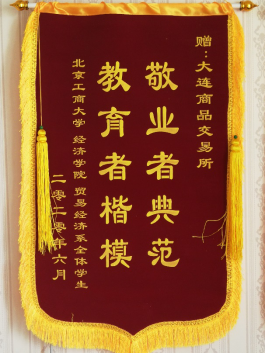 赠:大连商品交易所
敬业者典范
教育者楷模
北京工商大学 经济学院 贸易经济系全体学生
二零二零年六月